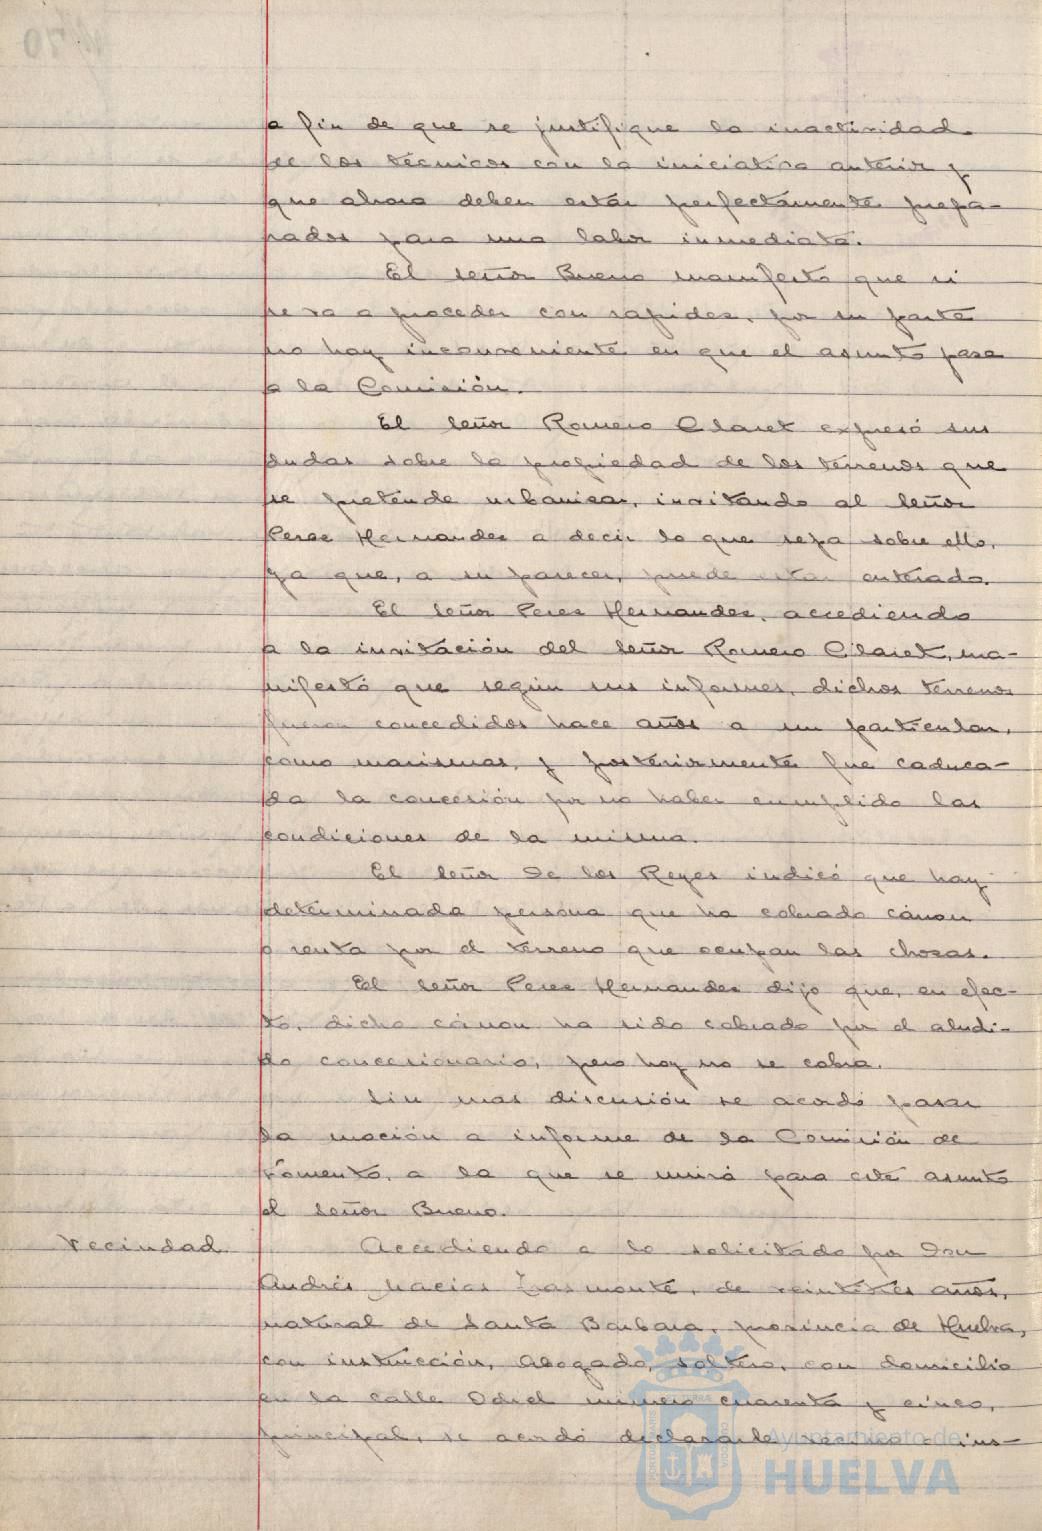 a fin de que se justifique la inactividad
de los técnicos con la iniciativa anterior y
que ahora deben estar perfectamente prepa-
rados para una labor inmediata.
El señor Bueno manifestó que si
se va a proceder con rapidez, por su parte
no hay inconveniente en que el asunto pase
a la Comisión.
El señor Romero Claret expresó sus
dudas sobre la propiedad de los terrenos que
se pretende urbanizar, invitando al señor
Perez Hernandez a decir lo que sepa sobre ello,
ya que, a su parecer, puede estar enterado.
El señor Perez Hernandez, accediendo
a la invitación del señor Romero Claret, ma-
nifestó que según sus informes, dichos terrenos
fueron concedidos hace años a un particular,
como marismas, y posteriormente fue caduca-
da la concesión por no haber cumplido las
condiciones de la misma.
El señor De los Reyes indicó que hay
determinada persona que ha cobrado cánon
o renta por el terreno que ocupan las chozas.
El señor Perez Hernandez dijo que, en efec-
to, dicho cánon ha sido cobrado por el aludi-
do concesionario, pero hoy no se cobra.
Sin mas discusión se acordó pasar
la moción a informe de la Comisión de
Fomento, a la que se unirá para este asunto
el señor Bueno.
Vecindad
Accediendo a lo solicitado por Don
Andrés Macias, de veintitres años,
natural de Santa Barbara, provincia de Huelva,
con instrucción, Abogado, soltero, con domicilio
en la calle Odiel número cuarenta y cinco,
principal, se acordó declararle vecino e ins-
Ayuntamiento de
HUELVA